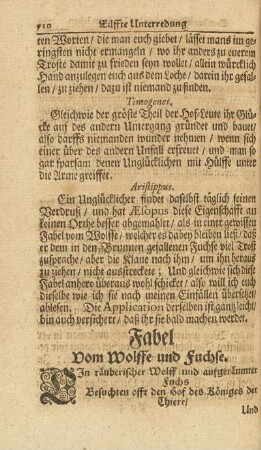 910 Eilffte Unterredung
ren Worten / die man euch giebet / lässet mans im ge-
ringsten nicht ermangeln / wo ihr anders zu euerem
Troste damit zu frieden seyn wollet / allein würcklich
Hand anzulegen euch aus dem Loche / darein ihr gefal-
len / zu ziehen / dazu ist niemand zu finden.
Timogenes.
Gleichwie der gröste Theil der Hof-Leute ihr Glü-
cke auf des andern Untergang gründet und bauet /
also darffs niemanden wunder nehmen / wenn sich
einer über des andern Unfall erfreuet / und man so
gar sparsam denen Unglücklichen mit Hülffe unter
die Arme greiffet.
Aristippus.
Ein Unglücklicher findet daselbst täglich seinen
Verdruß / und hat Æsopus diese Eigenschafft an
keinen Orthe besser abgemahlet / als in unter gewissen
Fabel vom Wolffe / welcher es dabey bleiben ließ / daß
er dem in den Brunnen gefallenen Fuchse viel Trost
zusprache / aber die Klaue nach ihm / um ihn heraus
zu ziehen / nicht ausstreckete; Und gleichwie sich diese
Fabel anhero überaus wohl schicket / also will ich euch
dieselbe wie ich sie nach meinen Einfällen übersetzet
ablesen. Die Application derselben ist gantz leicht /
bin auch versichert / daß ihr sie bald machen werdet.
Fabel
Vom Wolffe und Fuchse.
EIn räuberischer Wolff und aufgeräumter
Fuchs
Besuchten offt den Hof des Königes der
Thiere /
Und